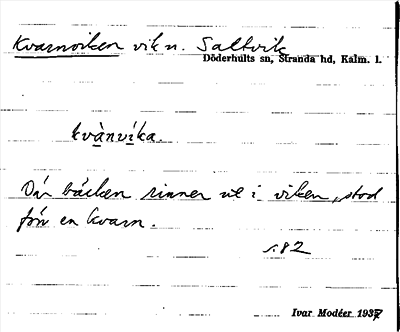 Kvarnviken vik n. Saltvik
Döderhults sn, Stranda hd, Kalm. l.
kvànvíka.
Där bäcken rinner ut i viken, stod
förr en kvarn.
s. 82
Ivar Modéer 1937